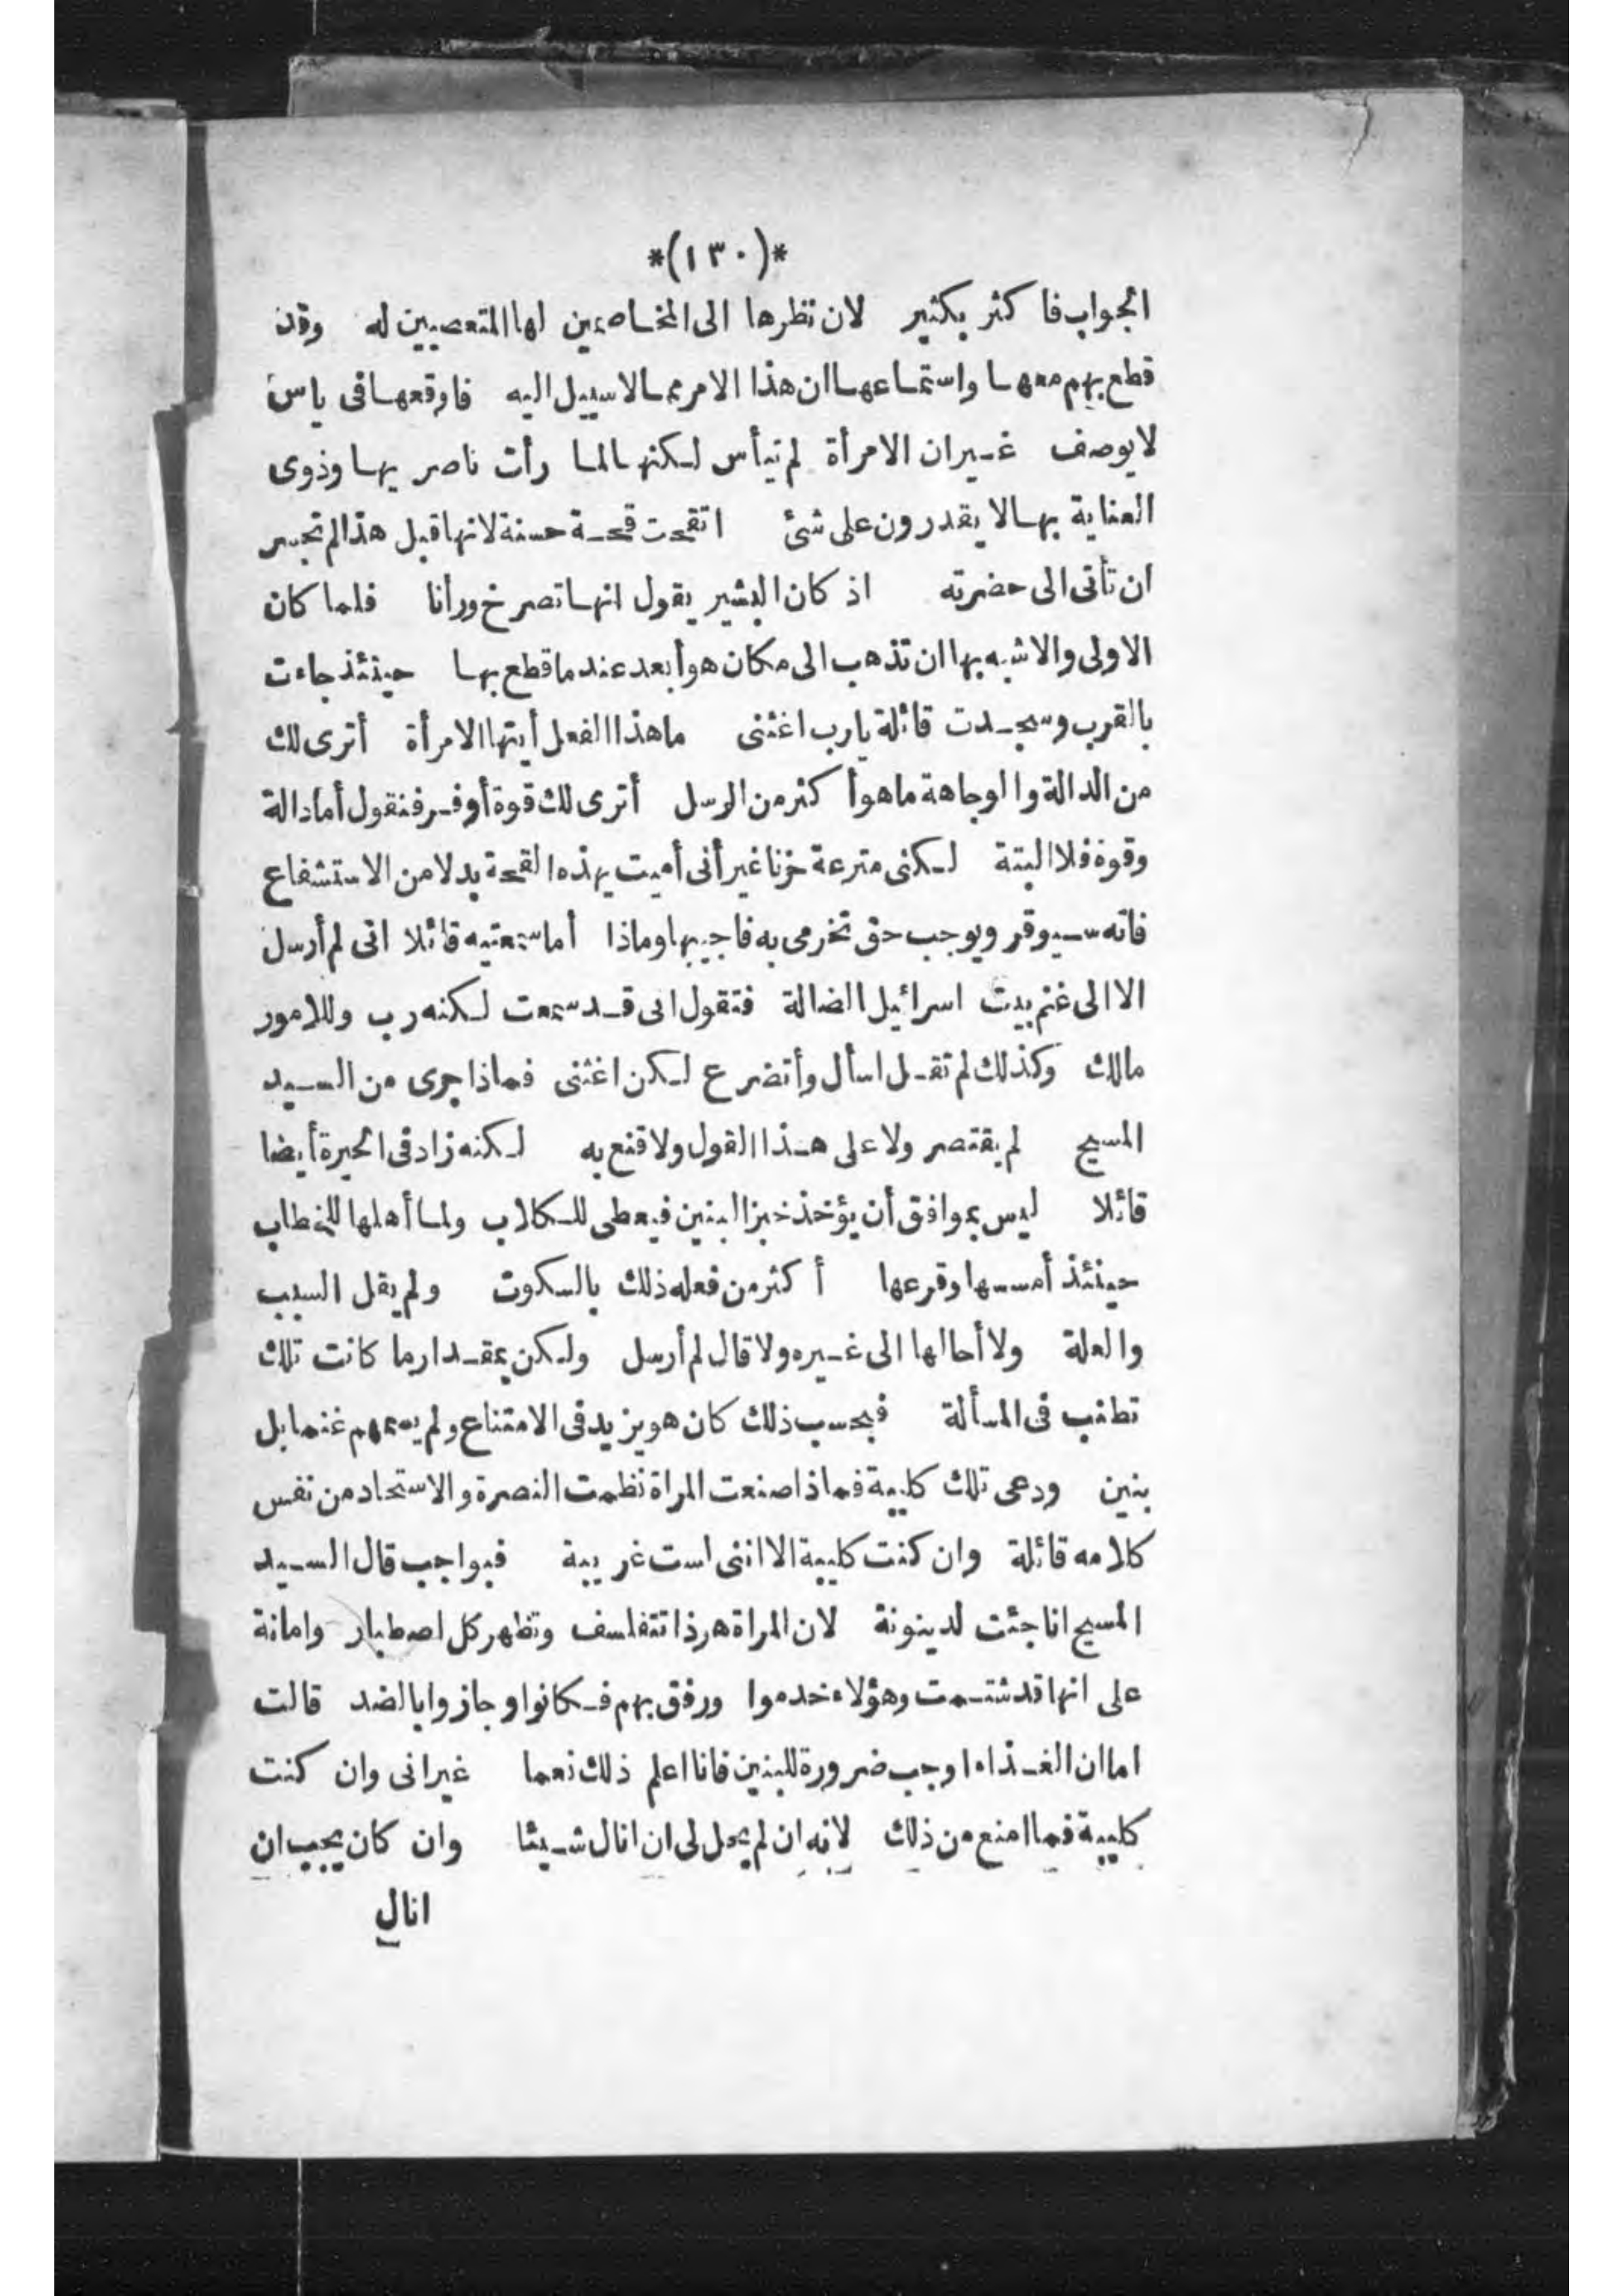 *(١٣٠)*
الجواب فاكثر بكثير لان نظرها الى المخاصمين لها المتعصبين له وقد
قطع بهم معها واستماعها ان هذا الامر مما لا سبيل اليه فاوقعها فى ياس
لا يوصف غير ان الامرأة لم تيأس لكنها لما رأت ناصريها وذوى
العناية بها لا يقدرون على شئ اتقحت قحة حسنة لانها قبل هذا لم تجسر
ان تأتى الى حضرته اذ كان البشير يقول انها تصرخ ورانا فلما كان
الاولى والاشبه بها ان تذهب الى مكان هو أبعد عند ما قطع بها حينئذ جاءت
بالقرب وسجدت قائلة يارب اغثنى ما هذا الفعل أيتها الامرأة أترى لك
من الدالة والوجاهة ما هو أكثر من الرسل أترى لك قوة أوفر فنقول أما دالة
وقوة فلا البتة لكنى مترعة خزنا غير أنى أميت بهذه القحة بدلا من الاستشفاع
فانه سيوقر ويوجب حق تخرمى به فاجيبها وماذا أما سمعتيه قائلا انى لم أرسل
الا الى غنم بيت اسرائيل الضالة فتقول انى قد سمعت لكنه رب وللامور
مالك وكذلك لم تقل اسأل وأتضرع لكن اغثنى فماذا جرى من السيد
المسيح لم يقتصر ولا على هذا القول ولا قنع به لكنه زاد فى الحيرة أيضا
قائلا ليس بموافق أن يؤخذ خبز البنين فيعطى للكلاب ولما أهلها للخطاب
حينئذ أمسسها وقرعها أكثر من فعله ذلك بالسكوت ولم يقل السبب
والعلة ولا أحالها الى غيره ولا قال لم أرسل ولكن بمقدار ما كانت تلك
تطنب فى المسألة فبحسب ذلك كان هو يزيد فى الامتناع ولم يسمهم غنما بل
بنين ودعى تلك كلبية فماذا صنعت المراة نظمت النصرة والاستحاد من نفس
كلامه قائلة وان كنت كلبية الا اننى لست غريبة فبواجب قال السيد
المسيح انا جئت لدينونة لان المراة هرذا تتفلسف وتظهر كل اصطبار وامانة
على انها قد شتمت وهؤلاء خدموا ورفق بهم فكانوا وجازوا بالضد قالت
اما ان الغذاء اوجب ضرورة للبنين فانا اعلم ذلك نعما غير انى وان كنت
كلبية فما امنع من ذلك لانه ان لم يحل لى ان انال شيئا وان كان يجب ان
انال